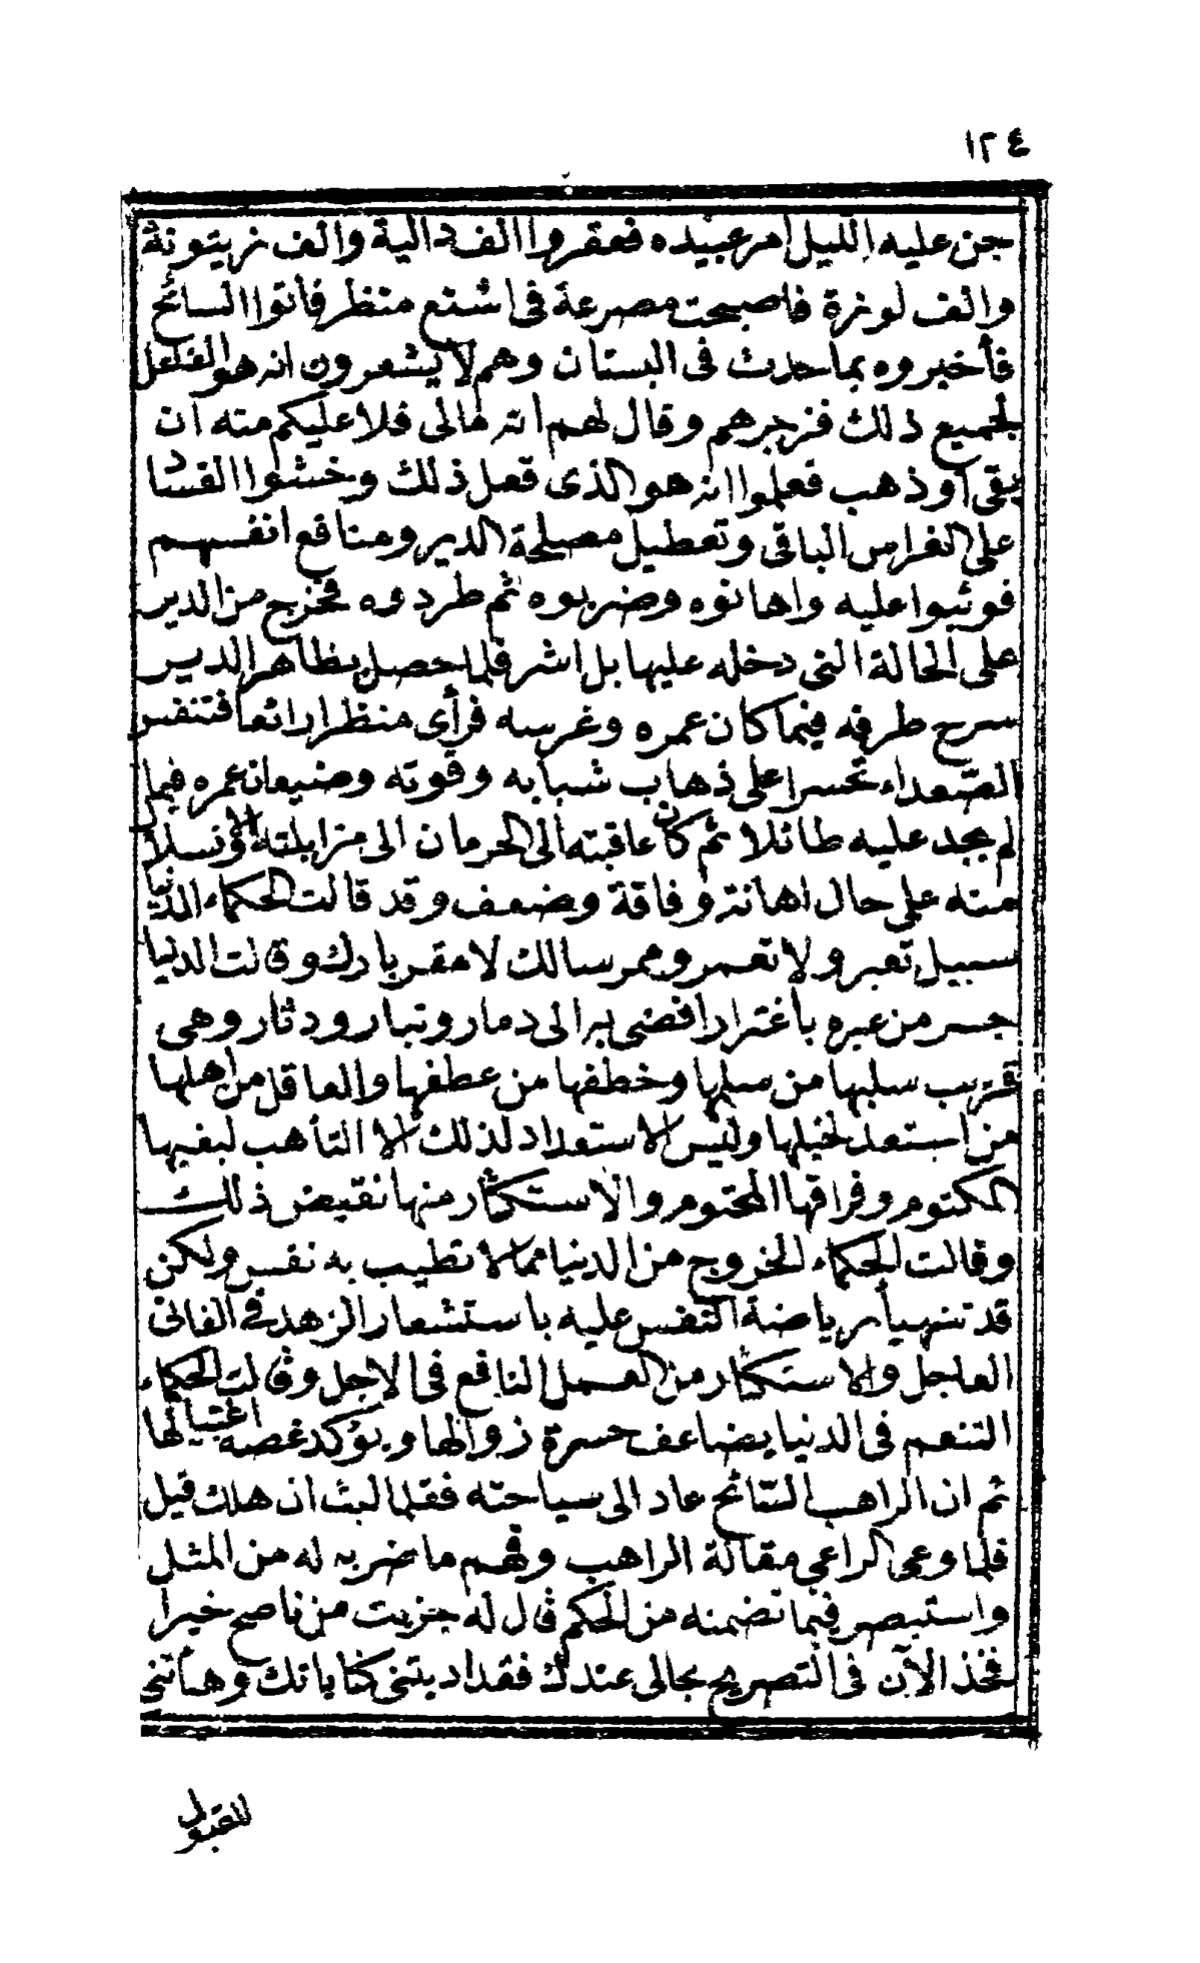 ١٢٤
جن عليه الليل امر عبيده فعقروا الف دالية والف زيتونة
والف لوزة فاصبحت مصرعة فى اشنع منظر فاتوا السائح
فأخبروه بما حدث فى البستان وهم لا يشعرون انه هو الفاعل
لجميع ذلك فزجرهم وقال لهم انه مالى فلا عليكم منه ان
يبقى او ذهب فعلموا انه هو الذى فعل ذلك وخشوا الفساد
على الغراس الباقى وتعطيل مصلحة الدير ومنافع انفسهم
فوثبوا عليه واهانوه وضربوه ثم طردوه فخرج من الدير
على الحالة التى دخله عليها بل اشر فلما حصل بظاهر الدير
سرح طرفه فيما كان عمره وغرسه فرأى منظرا رائعا فتنفس
الصعداء تحسرا على ذهاب شبابه وقوته وضيعان عمره فيما
لم يجد عليه طائلا ثم كان عاقبته الى الحرمان الى مزايلته
منه على حال اهانة وفاقة وضعف وقد قالت الحكماء الدنيا
سبيل تعبر ولا تعمر وممر سالك لا مقر بارك وقالت الدنيا
جسر من عبره باغترار افضى به الى دمار وتبار ودثار وهى
قريب سلبها من سلمها وخطفها من عطفها والعاقل من اهلها
من استعد لخيلها وليس الاستعداد لذلك الا التأهب لبغيها
المكتوم وفراقها المحتوم والاستكثار منها نقيض ذلك
وقالت الحكماء الخروج من الدنيا مما لا تطيب به نفس ولكن
قد تتهيأ رياضة النفس عليه باستشعار الزهد فى الفانى
العاجل والاستكثار من العمل النافع فى الاجل وقالت الحكماء
التنعم فى الدنيا يضاعف حسرة زوالها ويؤكد غصة اغتيالها
ثم ان الراهب السائح عاد الى سياحته فقلما لبث ان هلك قيل
فلما وعى الراعى مقالة الراهب وفهم ما ضربه له من المثل
واستبصر فيما تضمنه من الحكم قال له جزيت من ناصح خيرا
فخذ الآن فى التصريح بحالى عندك فقد ادبتنى كناياتك وهأنى
للقبول